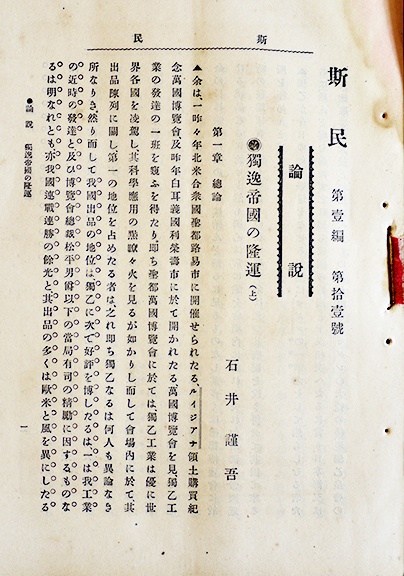 斯民
斯民 第壹編 第拾壹號
論說
獨逸帝國の隆運(上)
石井謹吾
第一章 總論
▲余は、一昨々年北米合衆國聖都路易市に開催せられたる、ルイジアナ領土購買紀
念萬國博覽會及昨年白耳義國利榮壽市に於て開かれたる萬國博覽會を見獨乙工
業の發達の一班を窺ふを得たり、即ち聖都萬國博覽會に於ては、獨乙工業は優に世
界各國を凌駕し、其科學應用の點瞭々火を見るが如かりし而して會場內に於て其
出品陳列に關し、第一の地位を占めたる者は、之れ即ち獨乙なるは何人も異論なき
所なりき、然り而して我國出品の地位は獨乙に次で好評を博したるは、一は我工業
の近時の發達と、及び博覽會總裁松平男爵以下の當局有司の精勵に因するものな
るは明なれとも亦我國連戰連勝の餘光と、其出品の多くは歐米と風を異にしたる
●論說 獨逸帝國の隆運
一